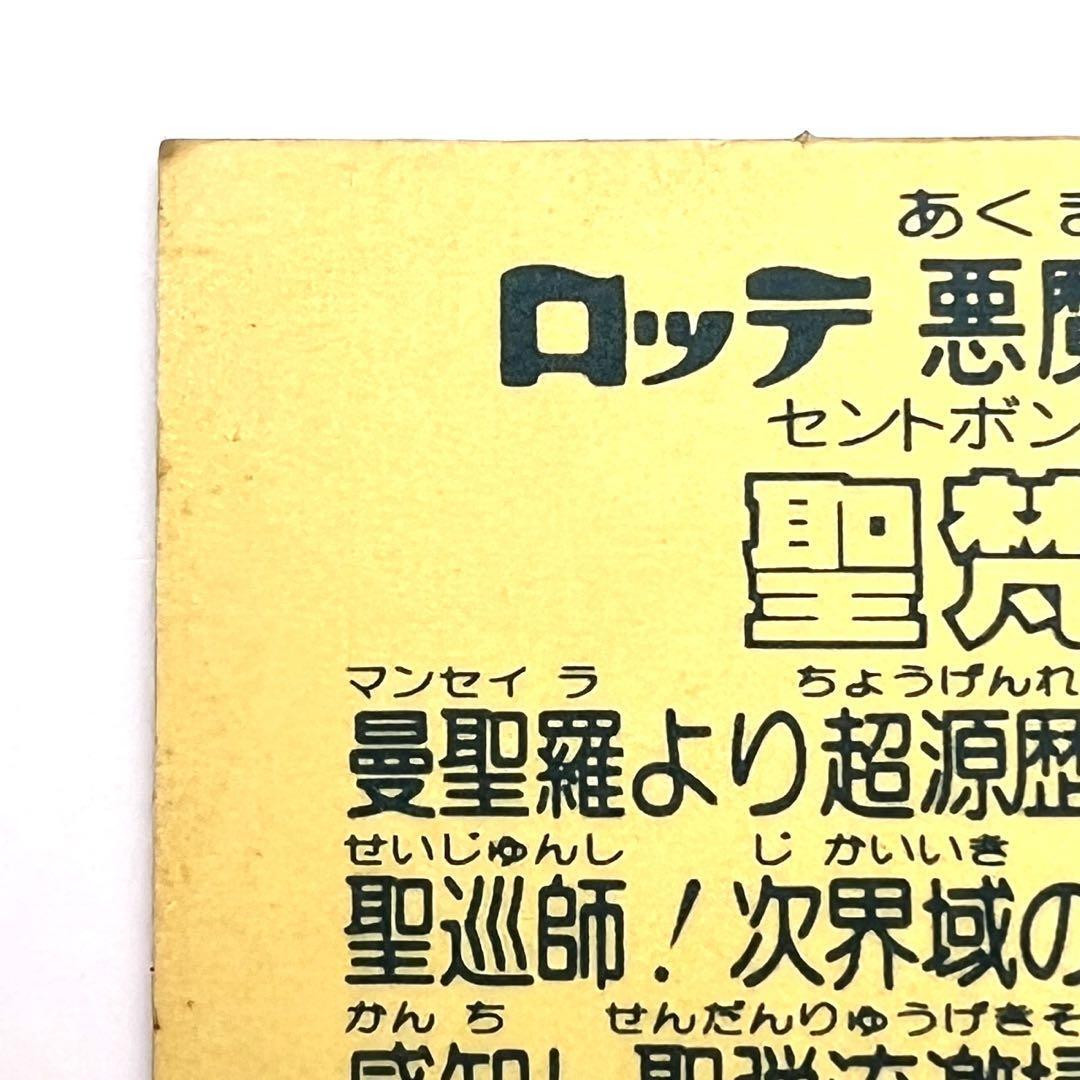 あくま
ロッテ 悪魔
セントボン
聖梵
マンセイラ ちょうげんれ
曼聖羅より超源歴
せいじゅんし じかいいき
聖巡師!次界域の
かんち せんだんりゅうげきそ
感知し聖弾流激